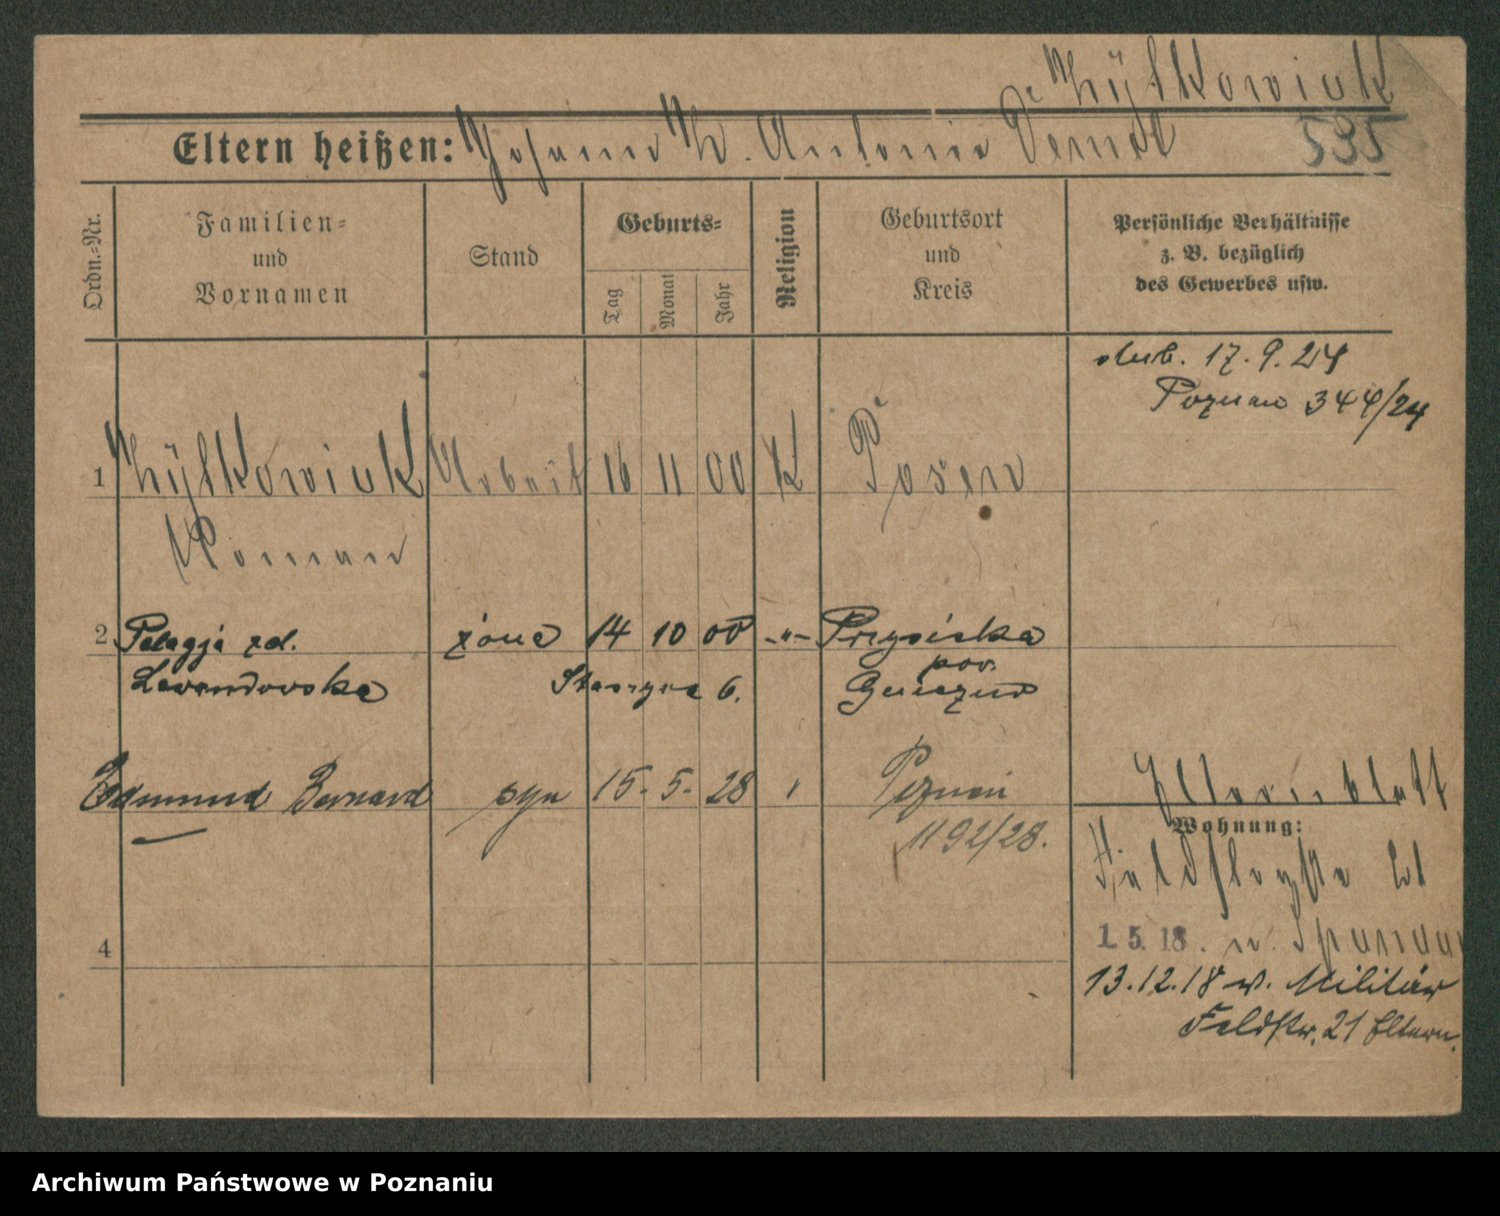 Zÿlkowiak
535
Eltern heißen: Johann Z. Antonie Dendt
Ordn.-Nr.
Familien-
und
Vornamen
Stand
Geburts-
Tag
Monat
Jahr
Religion
Geburtsort
und
Kreis
Persönliche Verhältnisse
z. B. bezüglich
des Gewerbes usw.
slub. 17.9.24
Poznan 344/24
1 Zÿlkowiak Arbeit 16 11 00 K Posen
Roman
2 Pelagja zd. żona 14 10 00 -"- Przysieka
Lewandowska 6. pow.
Gniezno
Edmund Bernard syn 15. 5. 28 Poznań
1192/28.
Elternblatt
Wohnung:
Feldstraße 21
1. 5. 18. n. Spandau
4
13.12.18 v. Militär
Feldstr. 21 Eltern.
Archiwum Państwowe w Poznaniu